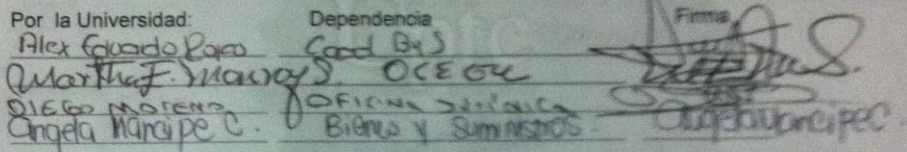 Por la Universidad: Dependencia Firma
Alex Eduardo Coord ByS
Martha F. OCEGU
DIEGO MORENO OFICINA JURIDICA
Angela Mancipe C. Bienes y Suministros. Angela Mancipe C.